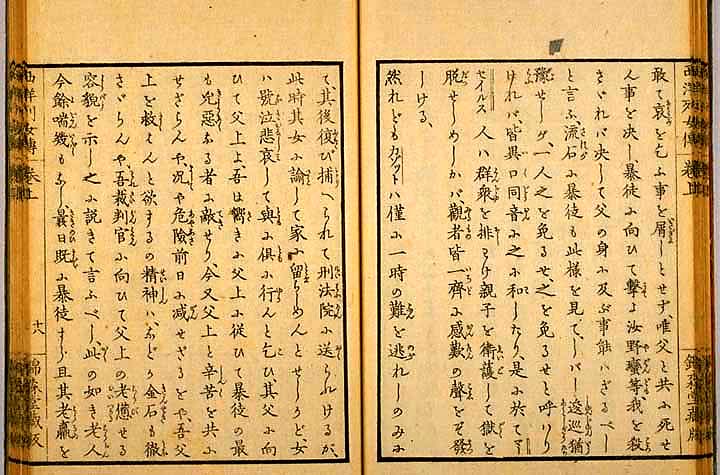 西洋列女傳 巻上
敢て哀を乞ふ事を屑しとせず、唯父と共ふ死せ
ん事を决し暴徒ふ向ひて擊よ汝野蠻等我を殺
さゞれバ决して父の身ふ及ぶ事能ハざるべし
と言ふ、流石ふ暴徒も此様を見て、しバし逡巡猶
豫せしが、一人之を免るせ、之を免るせと呼りけれバ
けれバ、皆異口同音ふ之ふ和したり、是ふ於て
セイルス 人ハ群衆を排らけ親子を衛護して獄を
脱せしめしかバ觀者皆一齊ふ感歎の聲をぞ發
しける、
然れどもカゾットハ僅ふ一時の難を逃れしのみふ
錦森堂藏版
て其後復び捕へられて刑法院ふ送られけるが、
此時其女ふ諭して家ふ留らしめんとせしうど女
ハ號泣悲哀して與ふ俱ふ行んと乞ひ其父ふ向
ひて父上よ吾は嚮きふ父上ふ從ひて暴徒の最
も兇惡ふる者ふ敵せり、今又父上と辛苦を共ふ
せざらんや、况や危險前日ふ减せざるをや吾父
上を救はんと欲するの精神ハ、などか金石も徹
さゞらんや、吾裁判官ふ向ひて父上の老憊せる
容貌を示し之ふ説きて言ふべし、此の如き老人
今餘喘幾もふし、最日既ふ暴徒すら且其老羸を
西洋列女傳 巻上
十八
錦森堂藏版